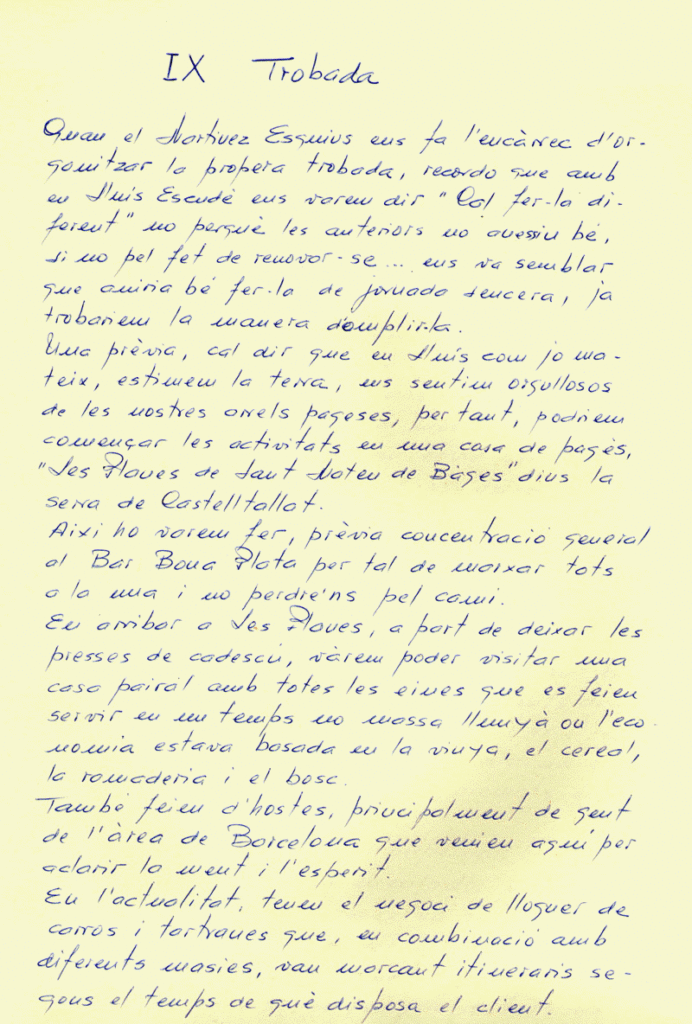 IX Trobada
Quan el Martinez Esquius ens fa l'encàrrec d'or-
ganitzar la propera trobada, recordo que amb
en Lluís Escudé ens varem dir "Cal fer-la di-
ferent" no perquè les anteriors no anessin bé,
si no pel fet de renovar-se... ens va semblar
que aniria bé fer-la de jornada sencera, ja
trobariem la manera d'omplir-la.
Una prèvia, cal dir que en Lluís com jo ma-
teix, estimem la terra, ens sentim orgullosos
de les nostres arrels pageses, per tant, podriem
començar les activitats en una casa de pagès,
"Les Planes de Sant Mateu de Bàges" dins la
serra de Castelltallat.
Aixi ho varem fer, prèvia concentració general
al Bar Bona Plata per tal de marxar tots
a la una i no perdre'ns pel cami.
En arribar a Les Planes, a part de deixar les
presses de cadescú, vàrem poder visitar una
casa pairal amb totes les eines que es feien
servir en un temps no massa llunyà on l'eco-
nomia estava basada en la vinya, el cereal,
la ramaderia i el bosc.
També feien d'hostes, principalment de gent
de l'àrea de Barcelona que venien aquí per
aclarir la ment i l'esperit.
En l'actualitat, tenen el negoci de lloguer de
carros i tartranes que, en combinació amb
diferents masies, van marcant itineraris se-
gons el temps de què disposa el client.